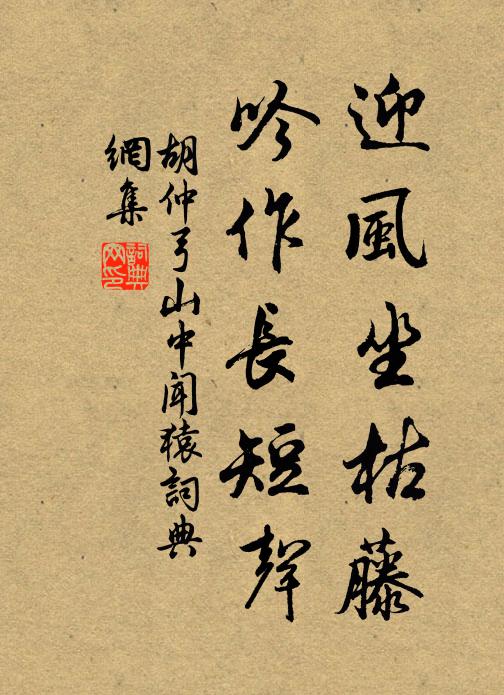 迎風坐枯藤
吟作長短聲
胡仲弓山中聞猿詞典
網集
詞典
网印